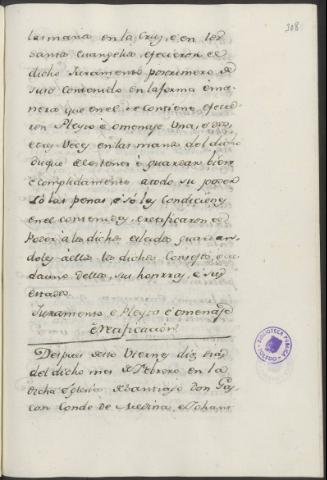 308
las manos en la Cruz, e en los
santos Evangelios, e ficieron el
dicho Juramento postrimero de
suso contenido en la forma e ma-
nera que en el se contiene, e ficie-
ron Pleyto e omenaje una, e dos,
e tres veces en las manos del dicho
Duque de los tener e guardar bien
e complidamente a todo su poder
só las penas e só las condiciones
en el contenidas, e ratificaron el
Poder a las dichas
doles a ellos los dichos Consexos, e ca-
da uno dellos, sus honrras, e sus
estados.
Juramento e Pleyto e omenaje
e ratificación
Despues desto Viernes diez dias
del dicho mes de Febrero en la
dicha Iglesia de Santiago don Gas-
ton Conde de Medina, e Johan
BIBLIOTECA PUBLICA
TOLEDO